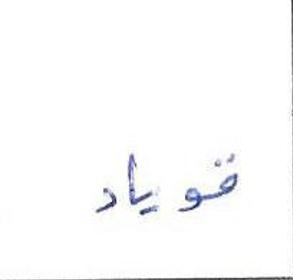 قوياد